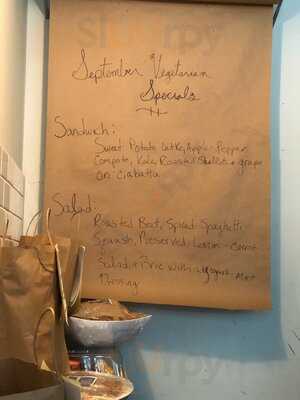 September Vegetarian
Specials
Sandwich:
Sweet Potato Latke, Apple-Pepper
Compote, Kale, Roasted Shallot + grape
on Ciabatta
Salad:
Roasted Beet, Spread Spaghetti
Squash, Preserved Lemon-Carrot
Salad + Brie with a yogurt-Mint
Dressing